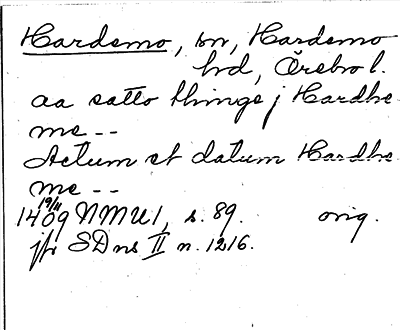 Hardemo, sn, Hardemo
hd, Örebro l.
aa satto thinge j Hardhe
me --
Actum et datum Hardhe
me --
19/11
1409 NMU 1, s. 89. orig.
jfr SDns II n. 1216.